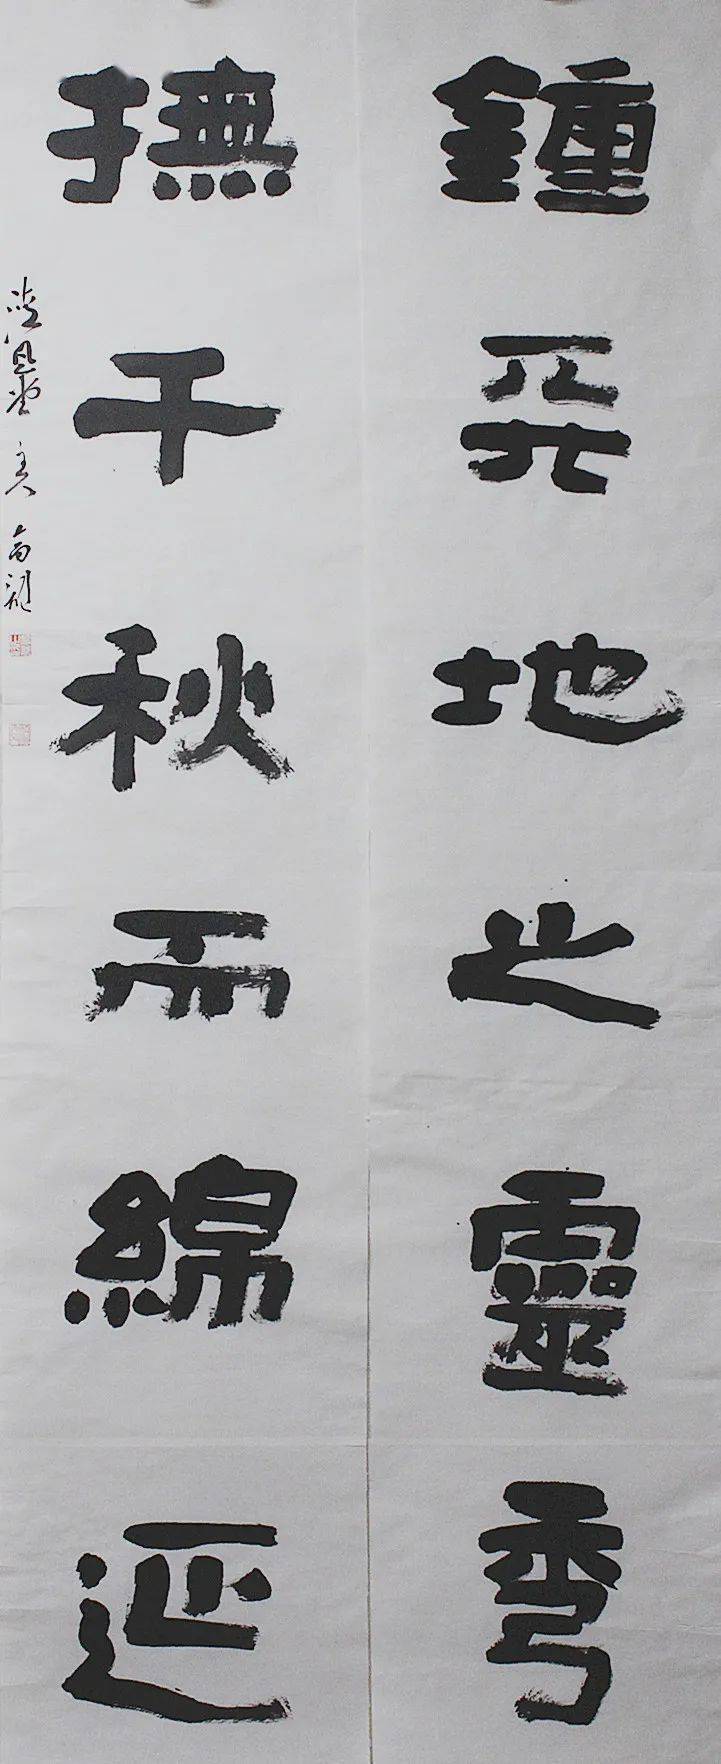 鍾天地之靈秀
撫千秋而綿延
堂主人